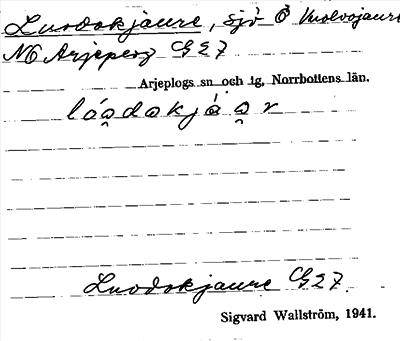 Luodokjaure, sjö Ö Kuolvojaure
NO Arjeplog G27
Arjeplogs sn och tg, Norrbottens län.
lǻo̯dokjá̀o̯r
Luodokjaure G27.
Sigvard Wallström, 1941.